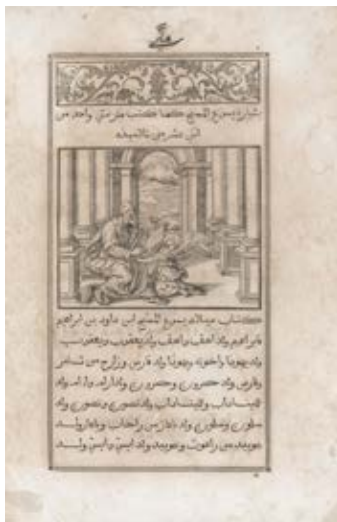 بشارة يسوع المسيح كما كتب مار متي واحد من
اثني عشر من تلاميذه
كتاب ميلاد يسوع المسيح ابن داود بن ابراهيم
فابراهيم ولد اسحق واسحق ولد يعقوب ويعقوب
ولد يهوذا واخوته ويهوذا ولد فارص وزارح من تامر
وفارص ولد حصرون وحصرون ولد ارام وارام ولد
عميناداب وعميناداب ولد نصون ونصون ولد
سلمون وسلمون ولد باعاز من راحاب وباعاز ولد
عوبيد من راعوت وعوبيد ولد ايسي وايسي ولد